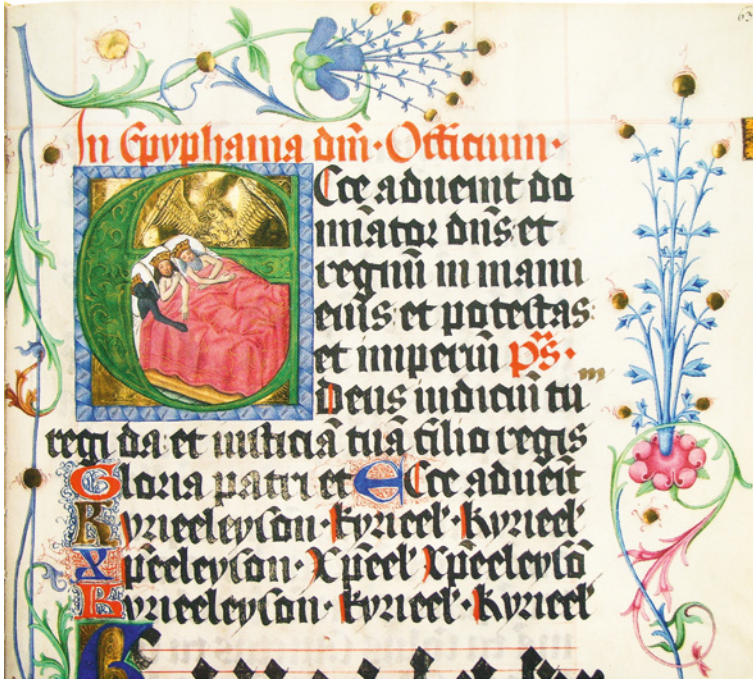 63
In Epyphania dm̄·Officium·
Ecce aduenit do
mīator dn̄s et
regnū in manu
eius et potestas
et imperiū ps̄·
Deus iudiciū tu
regi da et iusticiā tuā filio regis
Gloria patri et Ecce adueīt
Kyrieeleyson·kyrieel'·kyrieel'
Xp̄eeleyson·Xp̄eel' Xp̄eeleysō
Kyrieeleyson·kyrieel'·kyrieel'